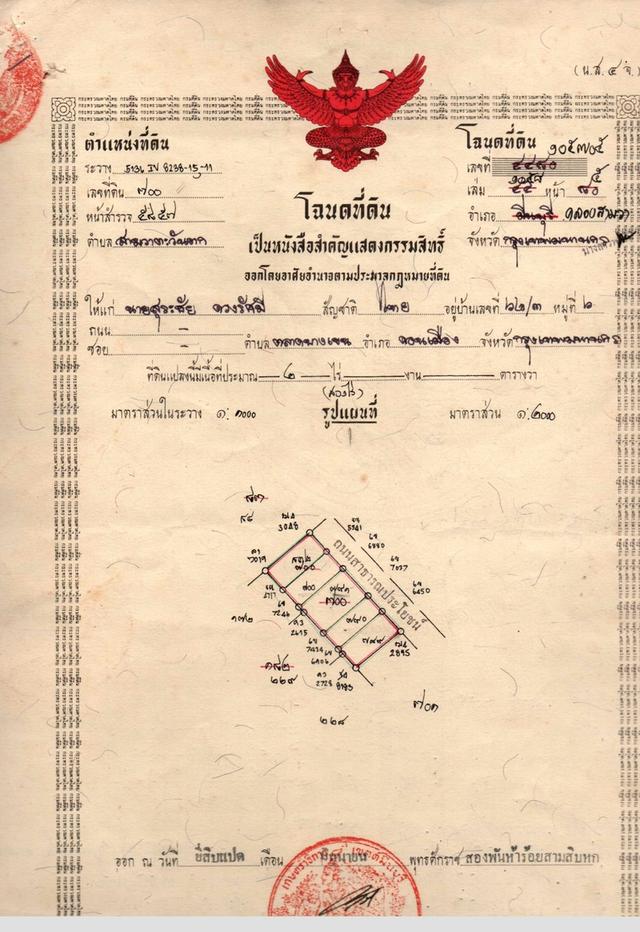 (น.ส.๔ จ.)
ตำแหน่งที่ดิน
ระวาง 5136 IV 8238-15-11
เลขที่ดิน ๗๐๐
หน้าสำรวจ ๕๘๕๗
ตำบล สามวาตะวันตก
โฉนดที่ดิน
เลขที่ ๑๐๕๗๐๕
เล่ม ๑๐๕๘ หน้า ๕
อำเภอ มีนบุรี คลองสามวา
จังหวัด กรุงเทพมหานคร
โฉนดที่ดิน
เป็นหนังสือสำคัญแสดงกรรมสิทธิ์
ออกโดยอาศัยอำนาจตามประมวลกฎหมายที่ดิน
ให้แก่ นายสุระชัย ดวงรัศมี สัญชาติ ไทย อยู่บ้านเลขที่ ๖๒/๓ หมู่ที่ ๖
ถนน –
ซอย – ตำบล ตลาดบางเขน อำเภอ ดอนเมือง จังหวัด กรุงเทพมหานคร
ที่ดินแปลงนี้มีเนื้อที่ประมาณ ๒ ไร่ – งาน – ตารางวา
(สองไร่)
มาตราส่วนในระวาง ๑: ๑๐๐๐ รูปแผนที่ มาตราส่วน ๑: ๒๐๐๐
๘๓
๙๔
3048
5541
6880
7037
6450
ถนนสาธารณประโยชน์
7019
๗๐๐
๗๐๐
7246
๑๗๒
2615
7424
6406
2895
๑๙๒
๒๒๙
2728
8193
๗๐๓
๒๒๘
ออก ณ วันที่ ยี่สิบแปด เดือน มิถุนายน พุทธศักราช สองพันห้าร้อยสามสิบหก